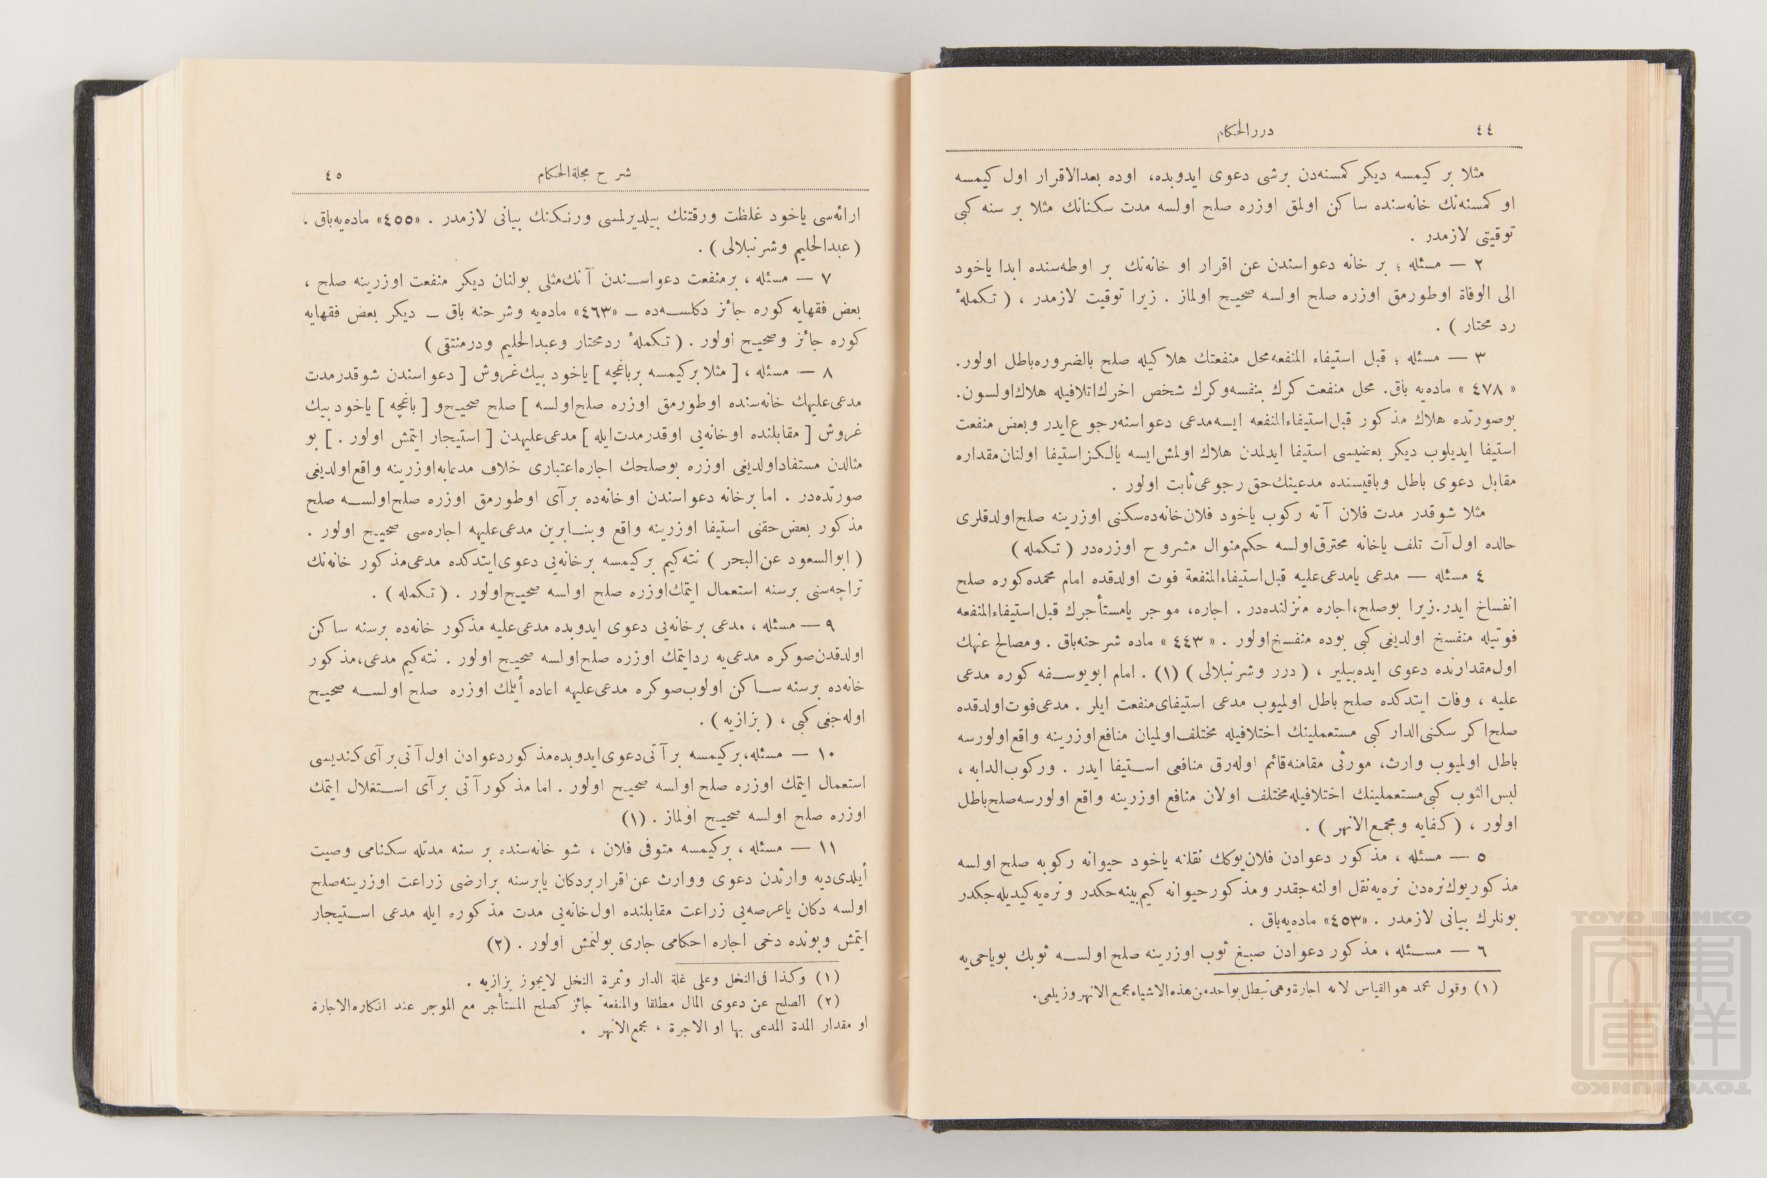 ٤٤
دررالحكام
مثلا بر كيمسه ديكر كمسنه‌دن برشى دعوى ايدوبده، اوده بعدالاقرار اول كيمسه
او كمسنه‌نك خانه‌سنده ساكن اولمق اوزره صلح اولسه مدت سكنانك مثلا بر سنه كبى
توقيتى لازمدر .
٢ — مسئله ؛ بر خانه دعواسندن عن اقرار او خانه‌نك بر اوطه‌سنده ابدا ياخود
الى الوفاة اوطورمق اوزره صلح اولسه صحيح اولماز . زيرا توقيت لازمدر ، ( تكملهٔ
رد محتار ) .
٣ — مسئله ؛ قبل استيفاء المنفعه محل منفعتك هلاكيله صلح بالضروره باطل اولور.
« ٤٧٨ » ماده‌يه باق. محل منفعت كرك بنفسه وكرك شخص اخرك اتلافيله هلاك اولسون.
بوصورتده هلاك مذكور قبل استيفاءالمنفعه ايسه مدعى دعواسنه رجوع ايدر وبعض منفعت
استيفا ايديلوب ديكر بعضيسى استيفا ايدلمدن هلاك اولمش ايسه يالكز استيفا اولنان مقداره
مقابل دعوى باطل وباقيسنده مدعينك حق رجوعى ثابت اولور .
مثلا شوقدر مدت فلان آته ركوب ياخود فلان خانه‌ده سكنى اوزرينه صلح اولدقلرى
حالده اول آت تلف ياخانه محترق اولسه حكم منوال مشروح اوزره‌در ( تكمله )
٤ مسئله — مدعى يا مدعى عليه قبل استيفاءالمنفعة فوت اولدقده امام محمده كوره صلح
انفساخ ايدر. زيرا بوصلح، اجاره منزلنده‌در . اجاره، موجر يا مستأجرك قبل استيفاءالمنفعه
فوتيله منفسخ اولديغى كبى بوده منفسخ اولور . « ٤٤٣ » ماده شرحنه باق . ومصالح عنهك
اول مقدارنده دعوى ايده‌بيلير ، ( درر وشرنبلالى ) (١) . امام ابويوسفه كوره مدعى
عليه ، وفات ايتدكده صلح باطل اولميوب مدعى استيفاى منفعت ايلر . مدعى فوت اولدقده
صلح اكر سكنى الدار كبى مستعملينك اختلافيله مختلف اولميان منافع اوزرينه واقع اولورسه
باطل اولميوب وارث، مورثى مقامنه قائم اوله‌رق منافعى استيفا ايدر . وركوب الدابه ،
لبس الثوب كبى مستعملينك اختلافيله مختلف اولان منافع اوزرينه واقع اولورسه صلح باطل
اولور ، ( كفايه ومجمع الانهر ) .
٥ — مسئله ، مذكور دعوادن فلان يوكك نقلنه ياخود حيوانه ركوبه صلح اولسه
مذكور يوك نره‌دن نره‌يه نقل اولنه‌جقدر ومذكور حيوانه كيم بينه‌جكدر ونره‌يه كيديله‌جكدر
بونلرك بيانى لازمدر . «٤٥٣» ماده‌يه باق .
٦ — مسئله ، مذكور دعوادن صبغ ثوب اوزرينه صلح اولسه ثوبك بوياجى‌يه
(١) وقول محمد هو القياس لانه اجارة وهى تبطل بواحد من هذه الاشياء مجمع الانهر وزيلعى.
شرح مجلة الحكام
٤٥
ارائه‌سى ياخود غلظت ورقتنك بيلديرلمسى ورنكنك بيانى لازمدر . «٤٥٥» ماده‌يه باق .
( عبدالحليم وشرنبلالى ) .
٧ — مسئله ، بر منفعت دعواسندن آنك مثلى بولنان ديكر منفعت اوزرينه صلح ،
بعض فقهايه كوره جائز دكلسه‌ده — «٤٦٣» ماده‌يه وشرحنه باق — ديكر بعض فقهايه
كوره جائز وصحيح اولور . ( تكملهٔ ردمختار وعبدالحليم ودرمنتقى )
٨ — مسئله ، [ مثلا بر كيمسه بر باغچه ] ياخود بيك غروش [ دعواسندن شوقدر مدت
مدعى عليهك خانه‌سنده اوطورمق اوزره صلح اولسه ] صلح صحيح و [ باغچه ] ياخود بيك
غروش [ مقابلنده او خانه‌يى اوقدر مدت ايله ] مدعى عليهدن [ استيجار ايتمش اولور . ] بو
مثالدن مستفاد اولديغى اوزره بوصلحك اجاره اعتبارى خلاف مدعابه اوزرينه واقع اولديغى
صورتده‌در . اما بر خانه دعواسندن او خانه‌ده بر آى اوطورمق اوزره صلح اولسه صلح
مذكور بعض حقنى استيفا اوزرينه واقع وبنابرين مدعى عليهه اجاره‌سى صحيح اولور .
( ابوالسعود عن البحر ) نته‌كيم بر كيمسه بر خانه‌يى دعوى ايتدكده مدعى مذكور خانه‌نك
تراچه‌سنى برسنه استعمال ايتمك اوزره صلح اولسه صحيح اولور . ( تكمله ) .
٩ — مسئله ، مدعى بر خانه‌يى دعوى ايدوبده مدعى عليه مذكور خانه‌ده برسنه ساكن
اولدقدن صوكره مدعى‌يه رد ايتمك اوزره صلح اولسه صحيح اولور . نته‌كيم مدعى، مذكور
خانه‌ده برسنه ساكن اولوب صوكره مدعى عليهه اعاده ايتمك اوزره صلح اولسه صحيح
اوله‌جغى كبى ، ( بزازيه ) .
١٠ — مسئله، بر كيمسه بر آتى دعوى ايدوبده مذكور دعوادن اول آتى بر آى كنديسى
استعمال ايتمك اوزره صلح اولسه صحيح اولور . اما مذكور آتى بر آى استغلال ايتمك
اوزره صلح اولسه صحيح اولماز . (١)
١١ — مسئله ، بر كيمسه متوفى فلان ، شو خانه‌سنده بر سنه مدتله سكنامى وصيت
أيلدى ديه وارثدن دعوى ووارث عن اقرار بر دكان يا برسنه بر ارضى زراعت اوزرينه صلح
اولسه دكان يا عرصه‌يى زراعت مقابلنده اول خانه‌يى مدت مذكوره ايله مدعى استيجار
ايتمش وبونده دخى اجاره احكامى جارى بولنمش اولور . (٢)
(١) وكذا فى النخل وعلى غلة الدار وثمرة النخل لايجوز بزازيه .
(٢) الصلح عن دعوى المال مطلقا والمنفعة جائز كصلح المستأجر مع الموجر عند انكاره الاجارة
او مقدار المدة المدعى بها او الاجرة ، مجمع الانهر .
TOYO BUNKO
東洋文庫
TOYO BUNKO